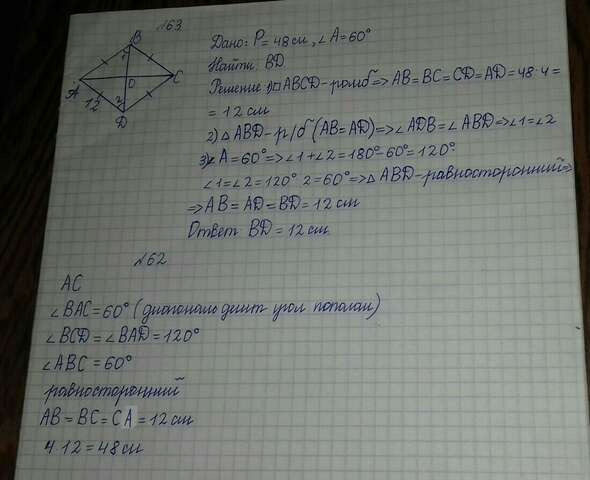 №63
Дано: P = 48 см, ∠A = 60°
Найти: BD
Решение 1) □ABCD-ромб => AB = BC = CD = AD = 48:4 =
= 12 см
2) △ABD-р/б (AB = AD) => ∠ADB = ∠ABD => ∠1 = ∠2
3) ∠A = 60° => ∠1 + ∠2 = 180° - 60° = 120°
∠1 = ∠2 = 120° 2 = 60° => △ABD-равносторонний =>
=> AB = AD = BD = 12 см
Ответ BD = 12 см
B
1
A
O
C
12
2
D
№62
AC
∠BAC = 60° (диагональ делит угол пополам)
∠BCD = ∠BAD = 120°
∠ABC = 60°
равносторонний
AB = BC = CA = 12 см
4·12 = 48 см